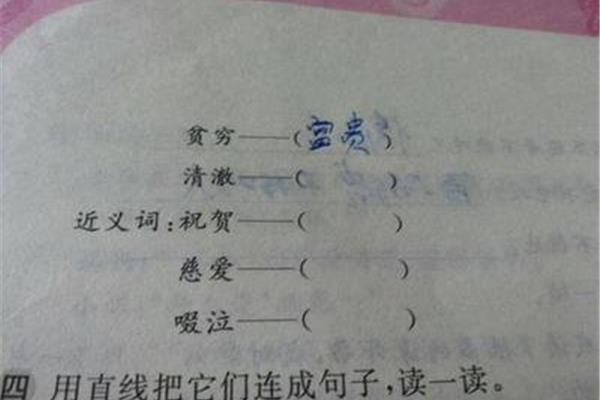 贫穷——(富贵)
清澈——( )
近义词:祝贺——( )
慈爱——( )
啜泣——( )
四 用直线把它们连成句子,读一读。